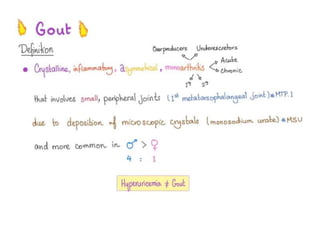 Gout
Definition
Overproducers Underexcretors
Acute
• Crystalline, inflammatory, asymmetrical, monoarthritis
Chronic
1° 2°
that involves small, peripheral joints (1st metatarsophalangeal joint) MTP.1
due to deposition of microscopic crystals (monosodium urate) MSU
and more common in ♂ > ♀
4 : 1
Hyperuricemia ≠ Gout